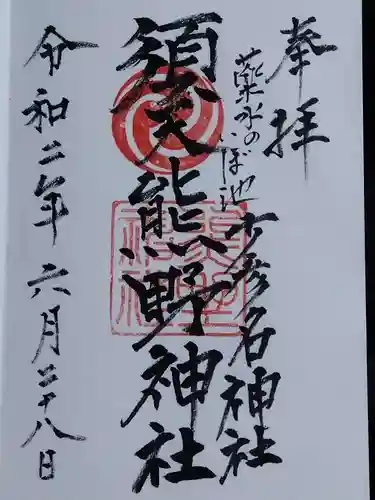 奉拝
薬水のいぼ池
少彦名神社
須天熊野神社
令和二年六月二十八日